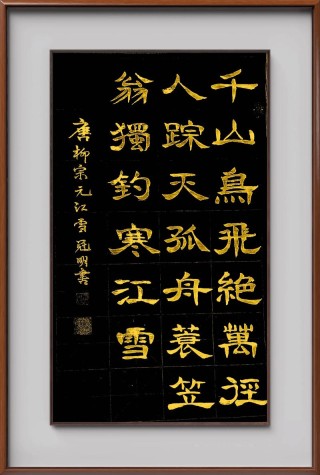 千山鳥飛絶萬徑
人踪灭孤舟蓑笠
翁獨釣寒江雪
唐柳宗元江雪冠明書